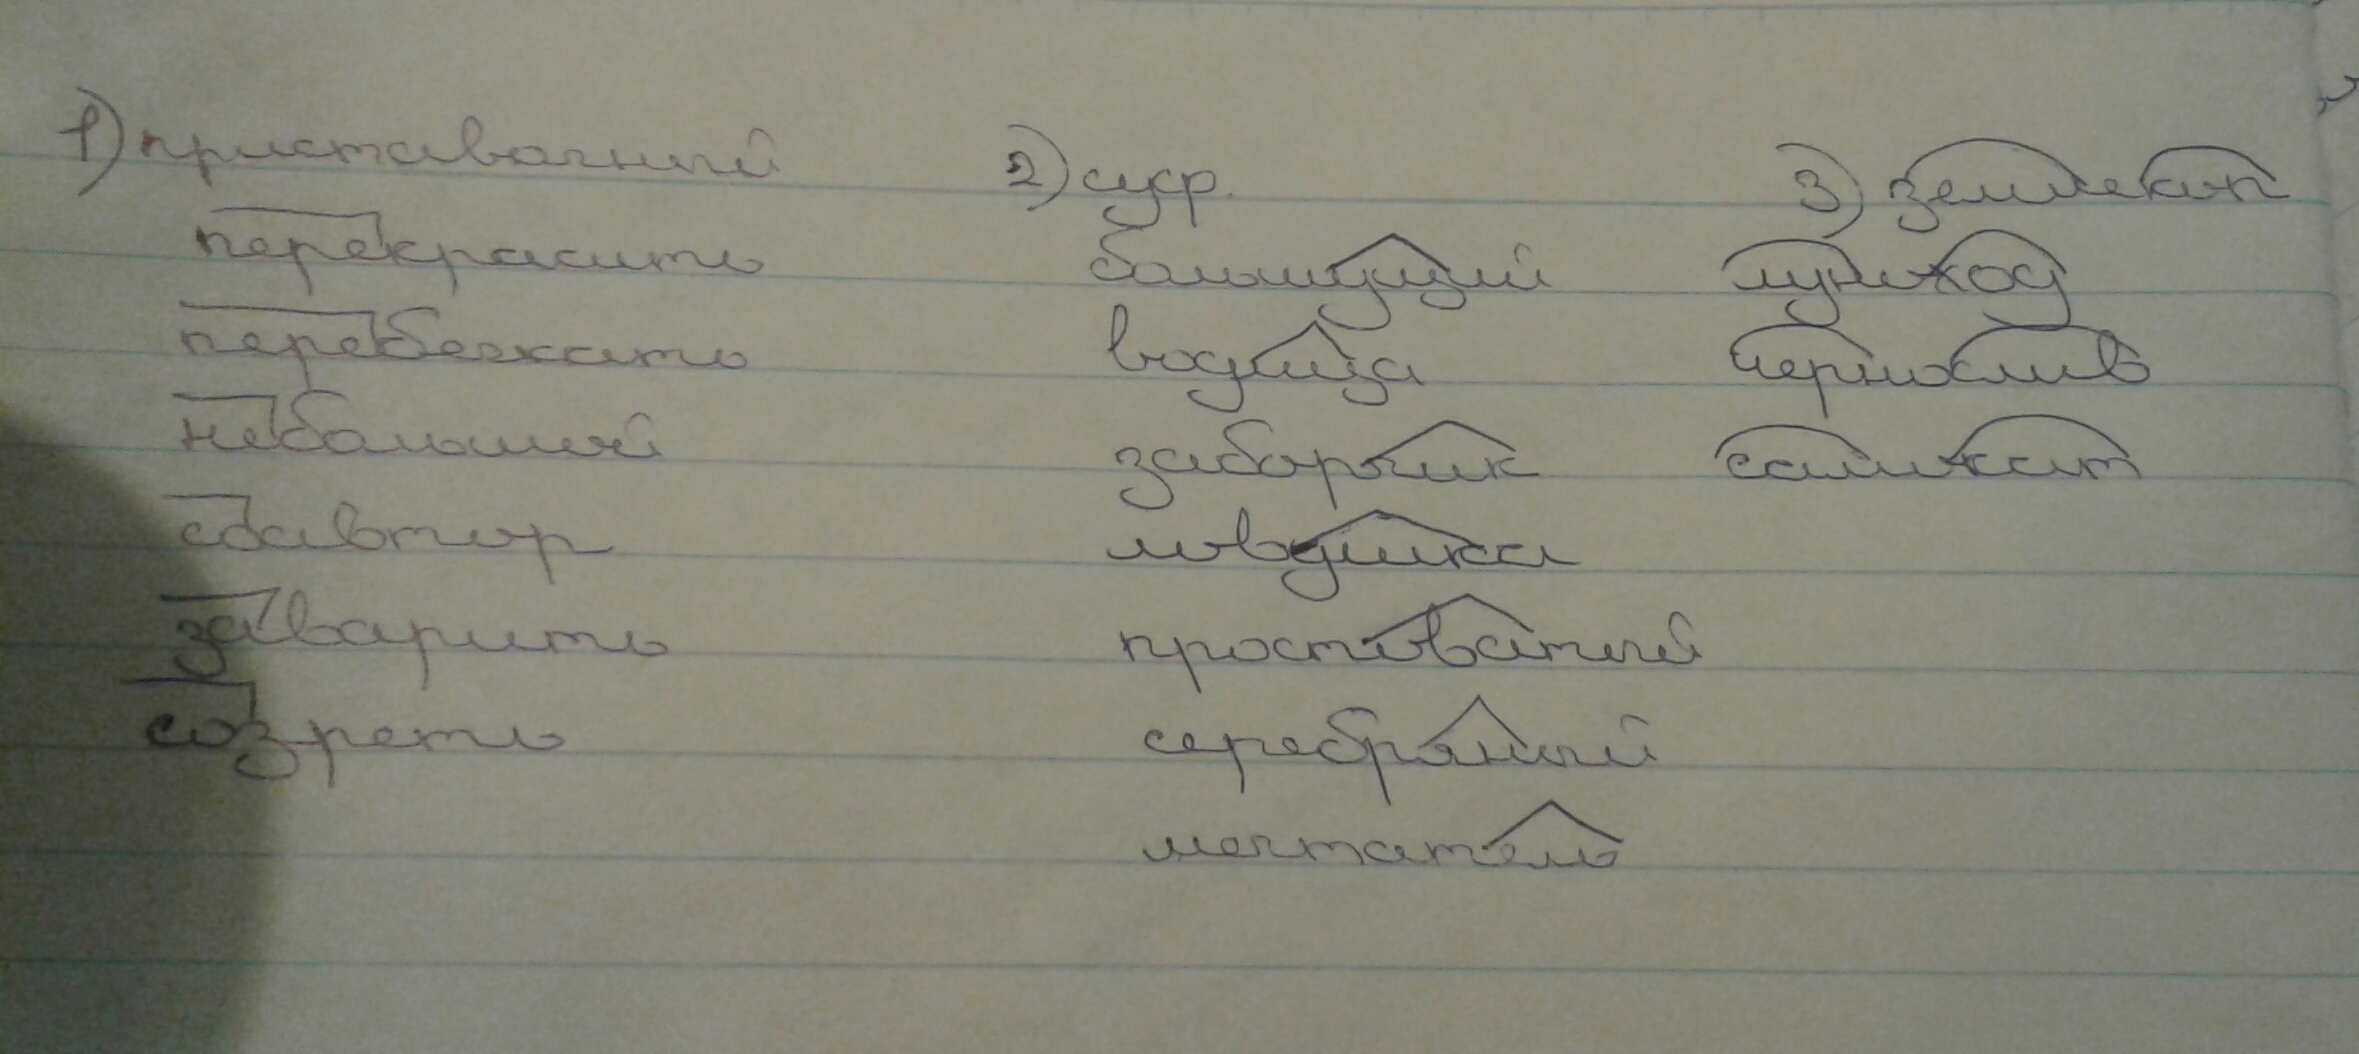 1) приставочный
перекрасить
перебежать
небольшой
соавтор
заварить
созреть
2) суф.
большущий
водица
заборчик
ловушка
простоватый
серебряный
мечтатель
3) землекоп
луноход
чернослив
самокат